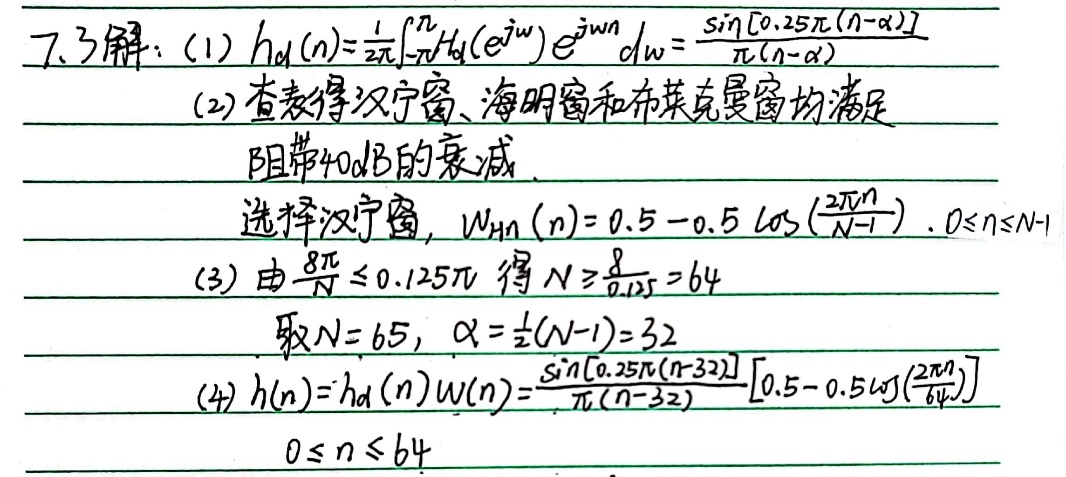 7.3解：(1) h_d(n)=\frac{1}{2π}∫_{-π}^{π}H_d(e^{jw})e^{jwn}dw=\frac{sin[0.25π(n-α)]}{π(n-α)}
(2) 查表得汉宁窗、海明窗和布莱克曼窗均满足
阻带40dB的衰减.
选择汉宁窗, W_{Hn}(n)=0.5-0.5cos(\frac{2πn}{N-1}). 0≤n≤N-1
(3) 由\frac{8π}{N}≤0.125π 得N≥\frac{8}{0.125}=64
取N=65, α=\frac{1}{2}(N-1)=32
(4) h(n)=h_d(n)w(n)=\frac{sin[0.25π(n-32)]}{π(n-32)}[0.5-0.5cos(\frac{2πn}{64})]
0≤n≤64